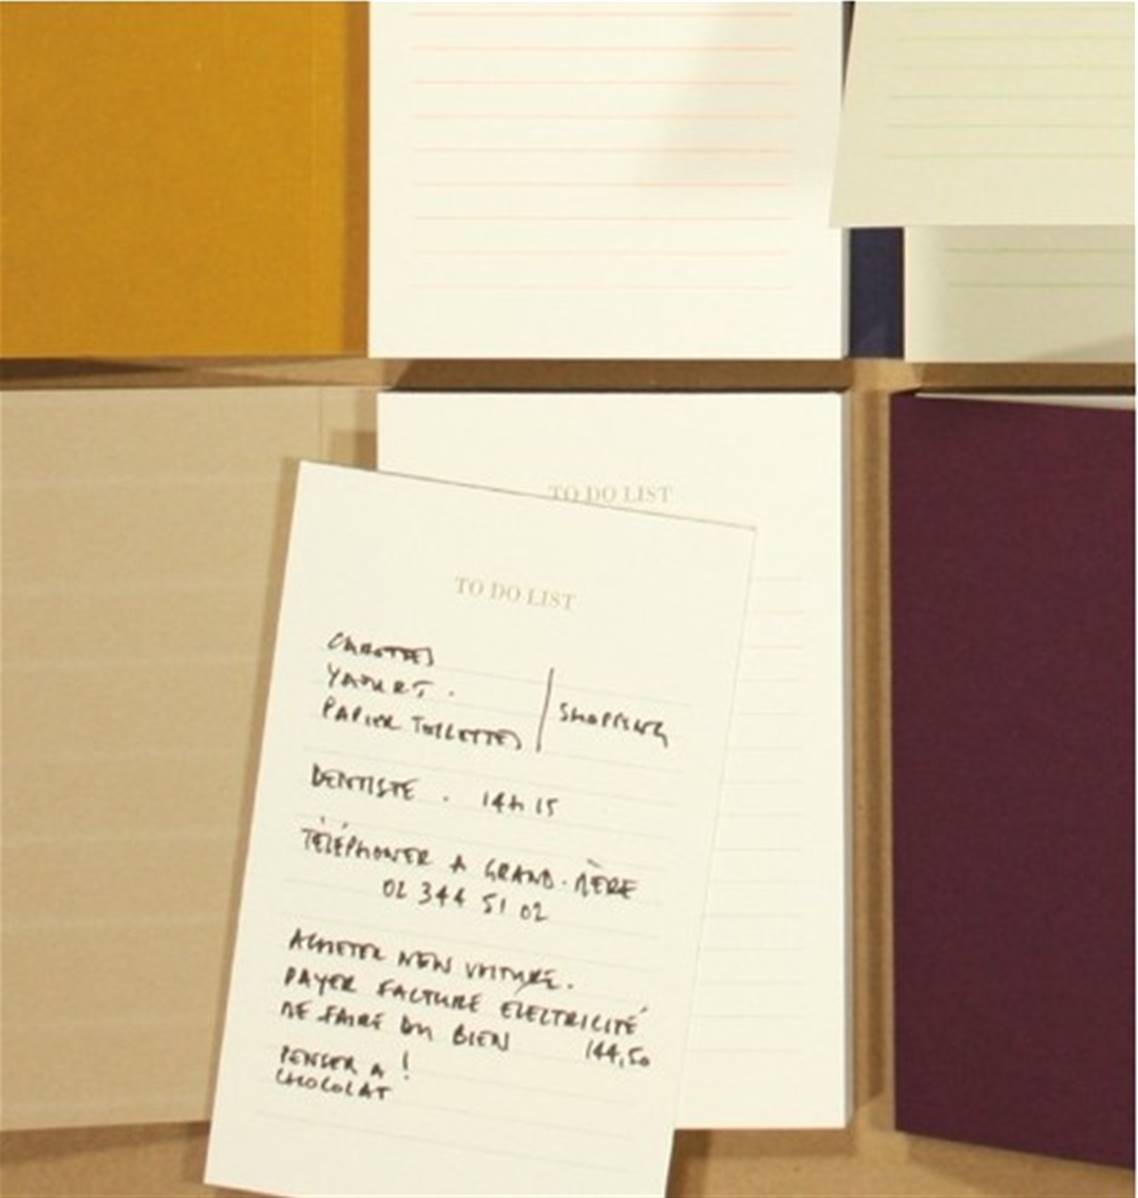 TO DO LIST
TO DO LIST
CAROTTES
YAOURT.
PAPIER TOILETTES
SHOPPING
DENTISTE. 14h15
TÉLÉPHONER A GRAND-MÈRE
02 344 51 02
ACHETER NEW VOITURE.
PAYER FACTURE ELECTRICITÉ
144,50
ME FAIRE DU BIEN
PENSER A !
CHOCOLAT